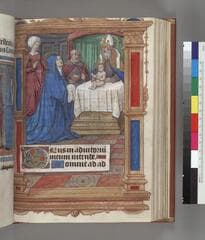 Eus in adiutoriu
meum intende.
Domine ad ad